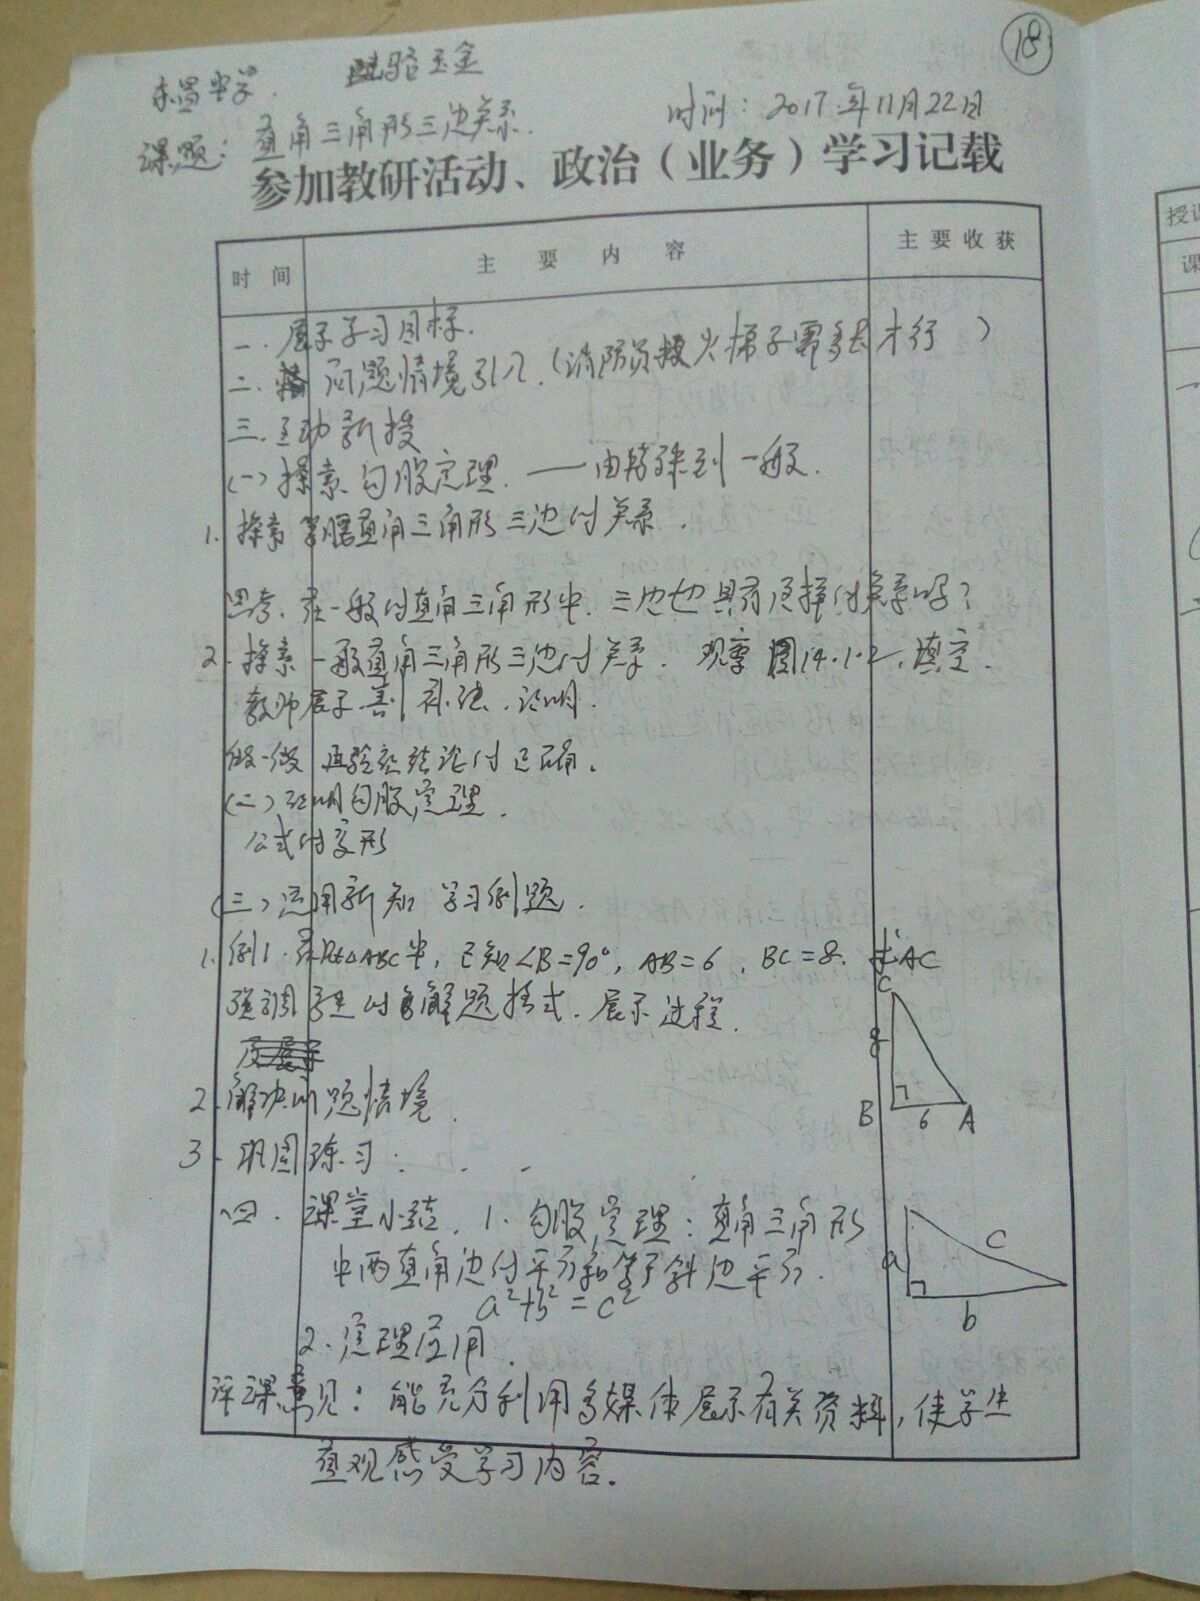 18
东昌中学. 骆玉金
课题: 直角三角形三边关系.
时间: 2017年11月22日
参加教研活动、政治（业务）学习记载
时 间 主 要 内 容 主 要 收 获
授课
课
一. 展示学习目标.
二. 问题情境引入.(消防员救火梯子需多长才行 )
三. 互动新授
(一) 探索勾股定理. ——由特殊到一般.
1. 探索等腰直角三角形三边的关系.
思考. 在一般的直角三角形中. 三边也具有这样的关系吗?
2. 探索一般直角三角形三边的关系. 观察图14.1.2, 填空.
教师展示割补法. 说明.
做一做 再验证结论的正确.
(二) 证明勾股定理.
公式的变形
(三) 运用新知 学习例题.
1. 例1. 在Rt△ABC中, 已知∠B=90°, AB=6, BC=8. 求AC
强调 的解题格式. 展示过程.
C
8
B 6 A
2. 解决问题情境.
3. 巩固练习:
四. 课堂小结. 1. 勾股定理: 直角三角形
中两直角边的平方和等于斜边平方.
a²+b²=c²
a c
b
2. 定理应用.
评课意见: 能充分利用多媒体展示有关资料, 使学生
直观感受学习内容.